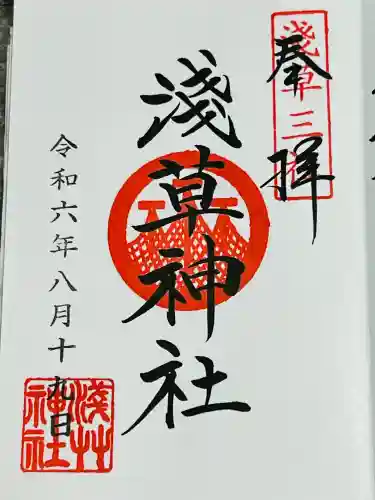 奉拝
淺草三社
淺草神社
令和六年八月十九日
淺草神社